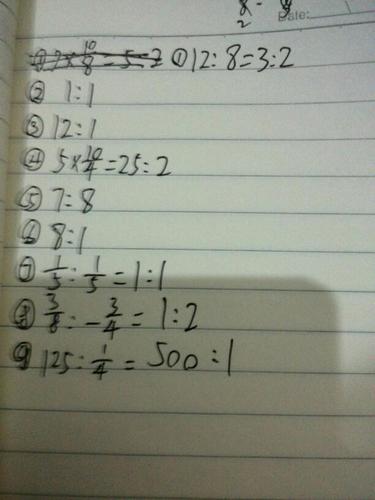 8
2
Date:
① 12:8=3:2
② 1:1
③ 12:1
④ 5×10/4=25:2
⑤ 7:8
⑥ 8:1
⑦ 1/5:1/5=1:1
⑧ 3/8:-3/4=1:2
⑨ 125:1/4=500:1